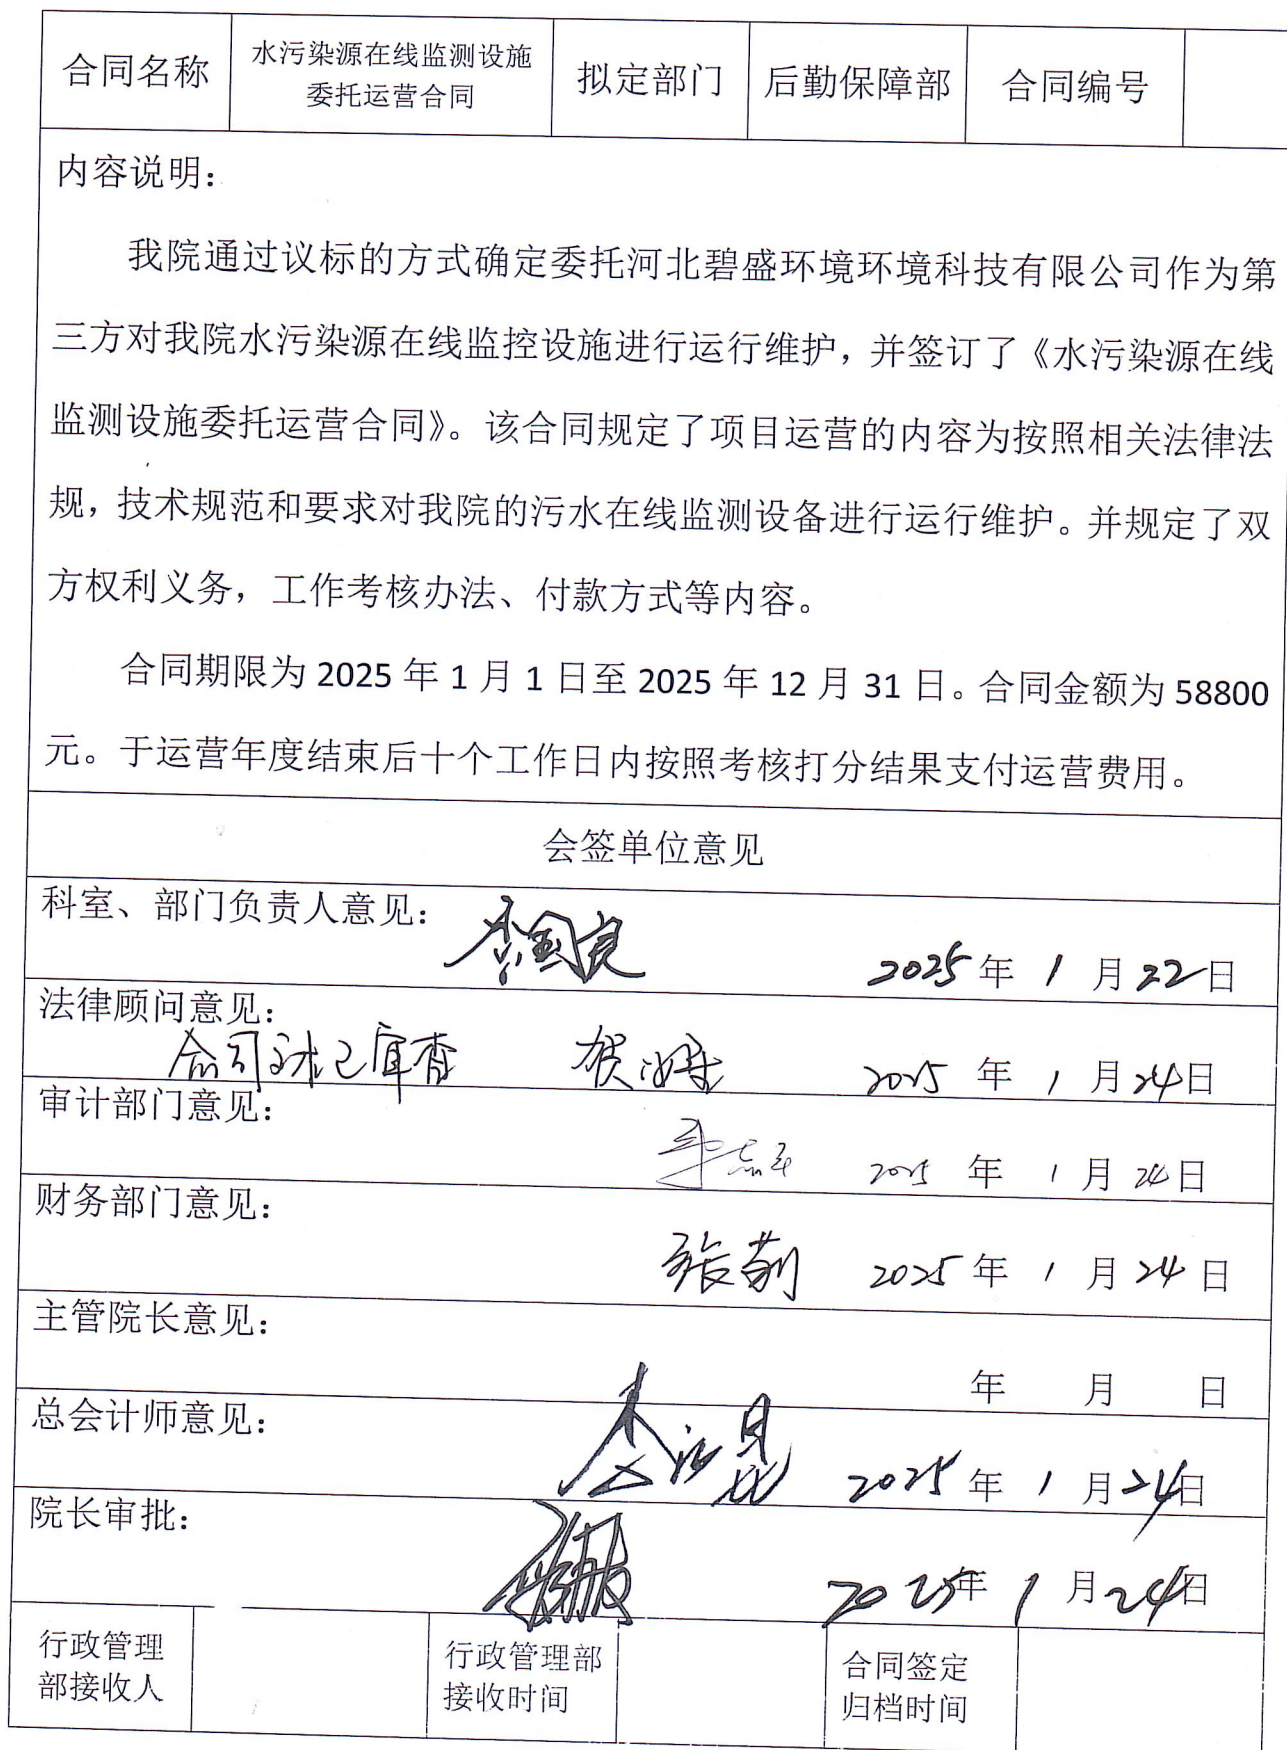 合同名称
水污染源在线监测设施
委托运营合同
拟定部门
后勤保障部
合同编号
内容说明：
我院通过议标的方式确定委托河北碧盛环境环境科技有限公司作为第
三方对我院水污染源在线监控设施进行运行维护，并签订了《水污染源在线
监测设施委托运营合同》。该合同规定了项目运营的内容为按照相关法律法
规，技术规范和要求对我院的污水在线监测设备进行运行维护。并规定了双
方权利义务，工作考核办法、付款方式等内容。
合同期限为 2025 年 1 月 1 日至 2025 年 12 月 31 日。合同金额为 58800
元。于运营年度结束后十个工作日内按照考核打分结果支付运营费用。
会签单位意见
科室、部门负责人意见：
2025 年 1 月 22 日
法律顾问意见：
已审查
2025 年 1 月 24 日
审计部门意见：
2025 年 1 月 24 日
财务部门意见：
2025 年 1 月 24 日
主管院长意见：
年 月 日
总会计师意见：
2025 年 1 月 24 日
院长审批：
2025 年 1 月 24 日
行政管理
部接收人
行政管理部
接收时间
合同签定
归档时间